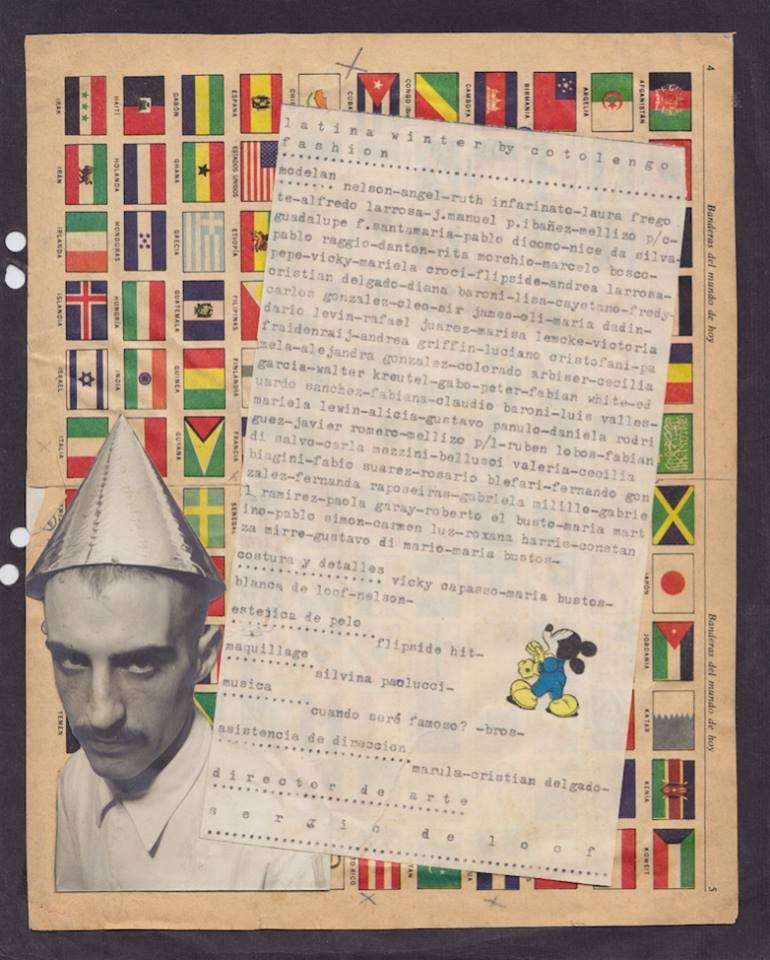 latina winter by cotolengo
fashion
modelan
nelson-angel-ruth infarinato-laura frego
te-alfredo larrosa-j.manuel p.ibañez-mellizo p/c-
guadalupe f.santamaria-pablo dicomo-nice da silva-
pablo raggio-danton-rita morchio-marcelo bosco-
pepe-vicky-mariela croci-flipside-andrea larrosa-
cristian delgado-diana baroni-lisa-cayetano-fredy-
carlos gonzalez-cleo-sir james-oli-maria dadin-
dario levin-rafael juarez-marisa lemcke-victoria
fraidenraij-andrea griffin-luciano cristofani-pa
zela-alejandra gonzalez-colorado arbiser-cecilia
garcia-walter kreutel-gabo-peter-fabian white-ed
uardo sanchez-fabiana-claudio baroni-luis valles-
mariela lewin-alicia-gustavo panulo-daniela rodri
guez-javier romero-mellizo p/l-ruben lobos-fabian
di salvo-carla mezzini-bellusci valeria-cecilia
biagini-fabio suarez-rosario blefari-fernando gon
zalez-fernanda raposeiras-gabriela milillo-gabrie
l ramirez-paola garay-roberto el busto-maria mart
ino-pablo simon-carmen luz-roxana harris-constan
za mirre-gustavo di mario-maria bustos-
costura y detalles
vicky capasso-maria bustos-
blanca de loof-nelson-
estetica de pelo
flipside hit-
maquillage
silvina paolucci-
musica
cuando seré famoso? -bros-
asistencia de direccion
marula-cristian delgado-
director de arte
sergio de loof
4
Banderas del mundo de hoy
Banderas del mundo de hoy
5
AFGANISTÁN
ARGELIA
BIRMANIA
CAMBOYA
CONGO
CUBA
ESPAÑA
ESTADOS UNIDOS
ETIOPÍA
FILIPINAS
FINLANDIA
FRANCIA
GABÓN
GHANA
GRECIA
GUATEMALA
GUINEA
GUYANA
HAITÍ
HOLANDA
HONDURAS
HUNGRÍA
INDIA
IRAK
IRÁN
IRLANDA
ISLANDIA
ISRAEL
ITALIA
JAPÓN
JORDANIA
KATAR
KENIA
KUWEIT
SENEGAL
YEMEN